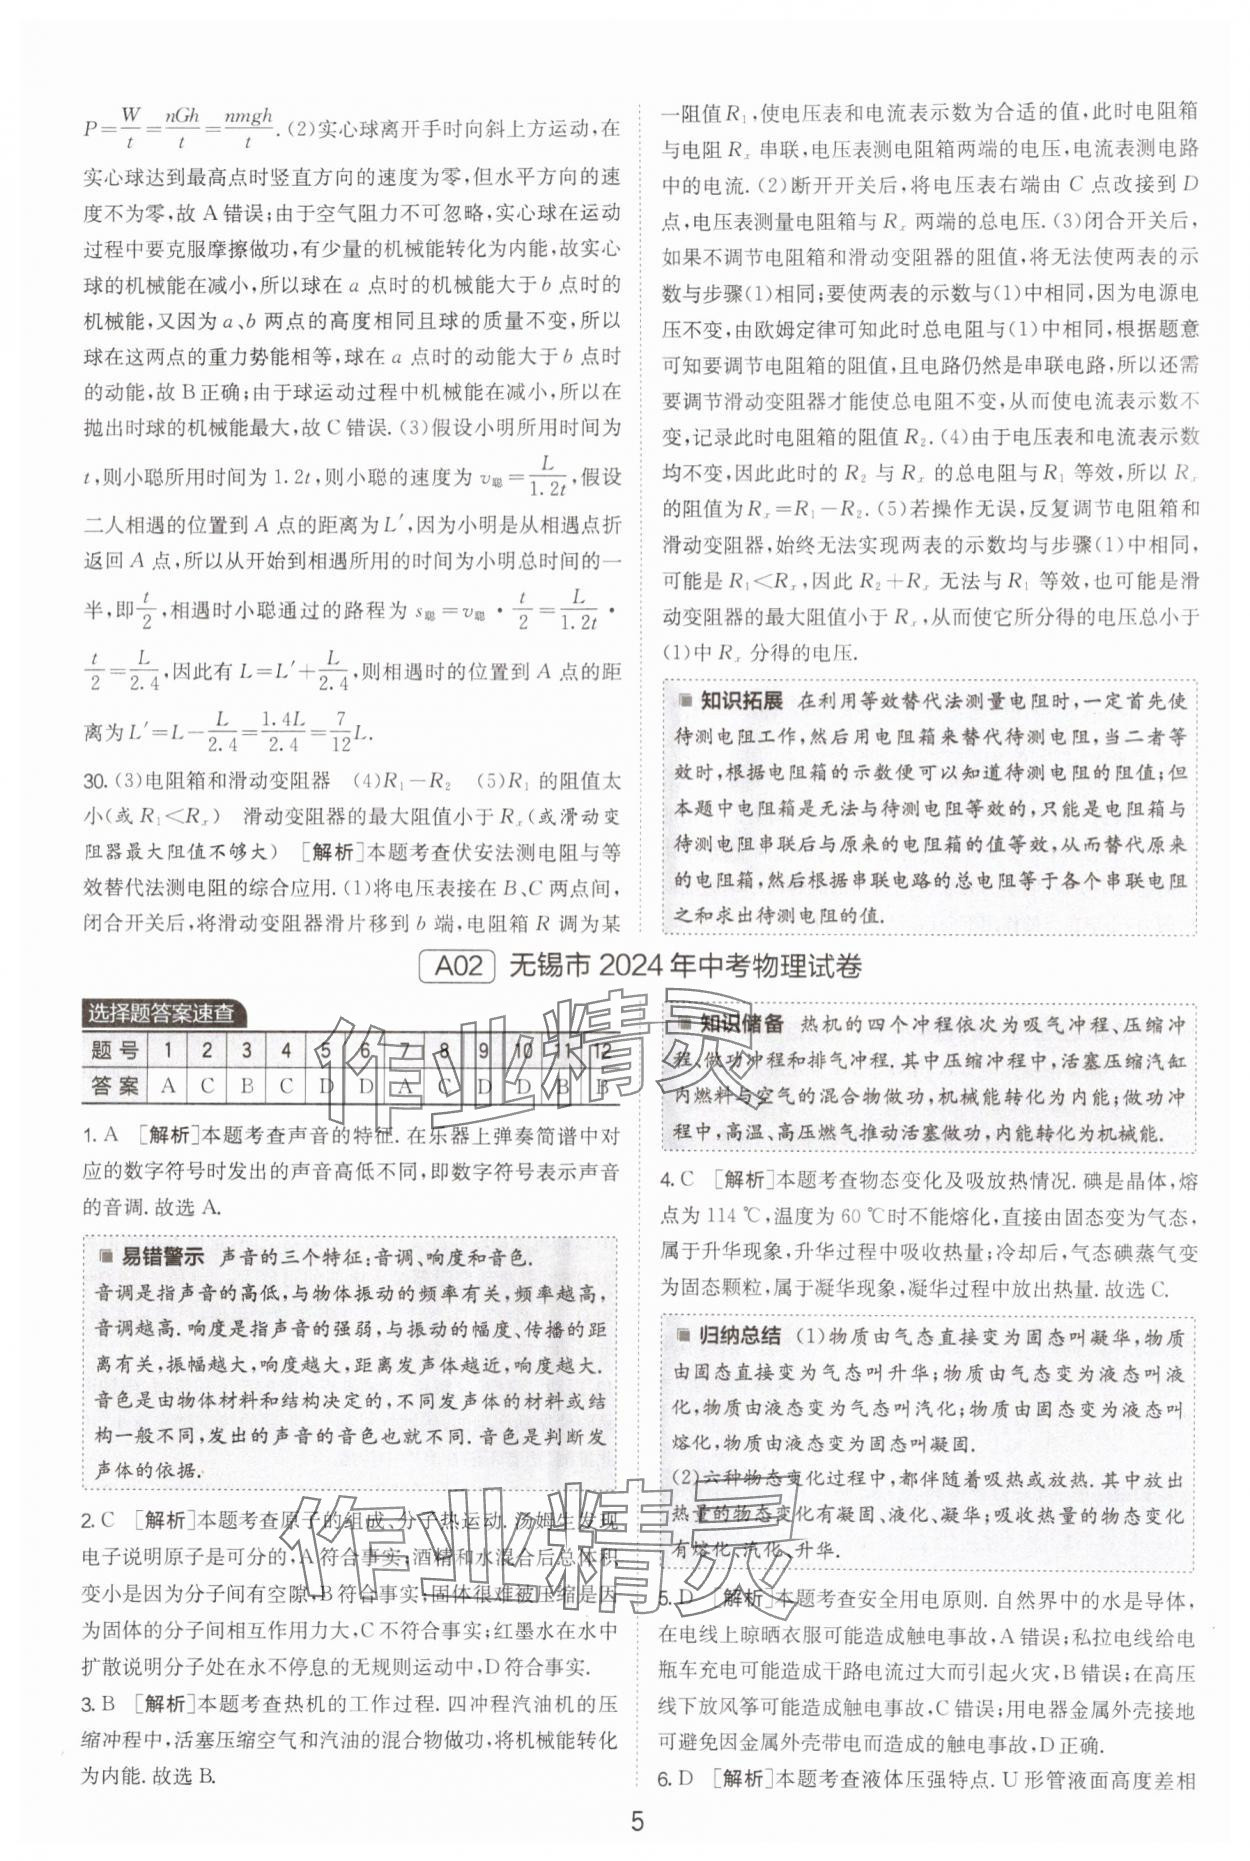 P=W/t=nGh/t=nmgh/t.(2)实心球离开手时向斜上方运动,在
实心球达到最高点时竖直方向的速度为零,但水平方向的速
度不为零,故 A 错误;由于空气阻力不可忽略,实心球在运动
过程中要克服摩擦做功,有少量的机械能转化为内能,故实心
球的机械能在减小,所以球在 a 点时的机械能大于 b 点时的
机械能,又因为 a、b 两点的高度相同且球的质量不变,所以
球在这两点的重力势能相等,球在 a 点时的动能大于 b 点时
的动能,故 B 正确;由于球运动过程中机械能在减小,所以在
抛出时球的机械能最大,故 C 错误.(3)假设小明所用时间为
t,则小聪所用时间为 1.2t,则小聪的速度为 v聪=L/1.2t,假设
二人相遇的位置到 A 点的距离为 L′,因为小明是从相遇点折
返回 A 点,所以从开始到相遇所用的时间为小明总时间的一
半,即t/2,相遇时小聪通过的路程为 s聪=v聪·t/2=L/1.2t·
t/2=L/2.4,因此有 L=L′+L/2.4,则相遇时的位置到 A 点的距
离为 L′=L-L/2.4=1.4L/2.4=7/12L.
30.(3)电阻箱和滑动变阻器 (4)R₁-R₂ (5)R₁ 的阻值太
小(或 R₁<Rₓ) 滑动变阻器的最大阻值小于 Rₓ(或滑动变
阻器最大阻值不够大) [解析]本题考查伏安法测电阻与等
效替代法测电阻的综合应用.(1)将电压表接在 B、C 两点间,
闭合开关后,将滑动变阻器滑片移到 b 端,电阻箱 R 调为某
一阻值 R₁,使电压表和电流表示数为合适的值,此时电阻箱
与电阻 Rₓ 串联,电压表测电阻箱两端的电压,电流表测电路
中的电流.(2)断开开关后,将电压表右端由 C 点改接到 D
点,电压表测量电阻箱与 Rₓ 两端的总电压.(3)闭合开关后,
如果不调节电阻箱和滑动变阻器的阻值,将无法使两表的示
数与步骤(1)相同;要使两表的示数与(1)中相同,因为电源电
压不变,由欧姆定律可知此时总电阻与(1)中相同,根据题意
可知要调节电阻箱的阻值,且电路仍然是串联电路,所以还需
要调节滑动变阻器才能使总电阻不变,从而使电流表示数不
变,记录此时电阻箱的阻值 R₂.(4)由于电压表和电流表示数
均不变,因此此时的 R₂ 与 Rₓ 的总电阻与 R₁ 等效,所以 Rₓ
的阻值为 Rₓ=R₁-R₂.(5)若操作无误,反复调节电阻箱和
滑动变阻器,始终无法实现两表的示数均与步骤(1)中相同,
可能是 R₁<Rₓ,因此 R₂+Rₓ 无法与 R₁ 等效,也可能是滑
动变阻器的最大阻值小于 Rₓ,从而使它所分得的电压总小于
(1)中 Rₓ 分得的电压.
知识拓展 在利用等效替代法测量电阻时,一定首先使
待测电阻工作,然后用电阻箱来替代待测电阻,当二者等
效时,根据电阻箱的示数便可以知道待测电阻的阻值;但
本题中电阻箱是无法与待测电阻等效的,只能是电阻箱与
待测电阻串联后与原来的电阻箱的值等效,从而替代原来
的电阻箱,然后根据串联电路的总电阻等于各个串联电阻
之和求出待测电阻的值.
A02 无锡市 2024 年中考物理试卷
选择题答案速查
题号 1 2 3 4 5 6 7 8 9 10 11 12
答案 A C B C D D A C D D B B
1. A [解析]本题考查声音的特征.在乐器上弹奏简谱中对
应的数字符号时发出的声音高低不同,即数字符号表示声音
的音调.故选 A.
易错警示 声音的三个特征:音调、响度和音色.
音调是指声音的高低,与物体振动的频率有关,频率越高,
音调越高.响度是指声音的强弱,与振动的幅度、传播的距
离有关,振幅越大,响度越大,距离发声体越近,响度越大.
音色是由物体材料和结构决定的,不同发声体的材料或结
构一般不同,发出的声音的音色也就不同.音色是判断发
声体的依据.
2. C [解析]本题考查原子的组成、分子热运动.汤姆生发现
电子说明原子是可分的,A 符合事实;酒精和水混合后总体积
变小是因为分子间有空隙,B 符合事实;固体很难被压缩是因
为固体的分子间相互作用力大,C 不符合事实;红墨水在水中
扩散说明分子处在永不停息的无规则运动中,D 符合事实.
3. B [解析]本题考查热机的工作过程.四冲程汽油机的压
缩冲程中,活塞压缩空气和汽油的混合物做功,将机械能转化
为内能.故选 B.
知识储备 热机的四个冲程依次为吸气冲程、压缩冲
程、做功冲程和排气冲程.其中压缩冲程中,活塞压缩汽缸
内燃料与空气的混合物做功,机械能转化为内能;做功冲
程中,高温、高压燃气推动活塞做功,内能转化为机械能.
4. C [解析]本题考查物态变化及吸放热情况.碘是晶体,熔
点为 114 ℃,温度为 60 ℃时不能熔化,直接由固态变为气态,
属于升华现象,升华过程中吸收热量;冷却后,气态碘蒸气变
为固态颗粒,属于凝华现象,凝华过程中放出热量.故选 C.
归纳总结 (1)物质由气态直接变为固态叫凝华,物质
由固态直接变为气态叫升华;物质由气态变为液态叫液
化,物质由液态变为气态叫汽化;物质由固态变为液态叫
熔化,物质由液态变为固态叫凝固.
(2)六种物态变化过程中,都伴随着吸热或放热.其中放出
热量的物态变化有凝固、液化、凝华;吸收热量的物态变化
有熔化、汽化、升华.
5. D [解析]本题考查安全用电原则.自然界中的水是导体,
在电线上晾晒衣服可能造成触电事故,A 错误;私拉电线给电
瓶车充电可能造成干路电流过大而引起火灾,B 错误;在高压
线下放风筝可能造成触电事故,C 错误;用电器金属外壳接地
可避免因金属外壳带电而造成的触电事故,D 正确.
6. D [解析]本题考查液体压强特点.U 形管液面高度差相
5
作业精灵
作业精灵